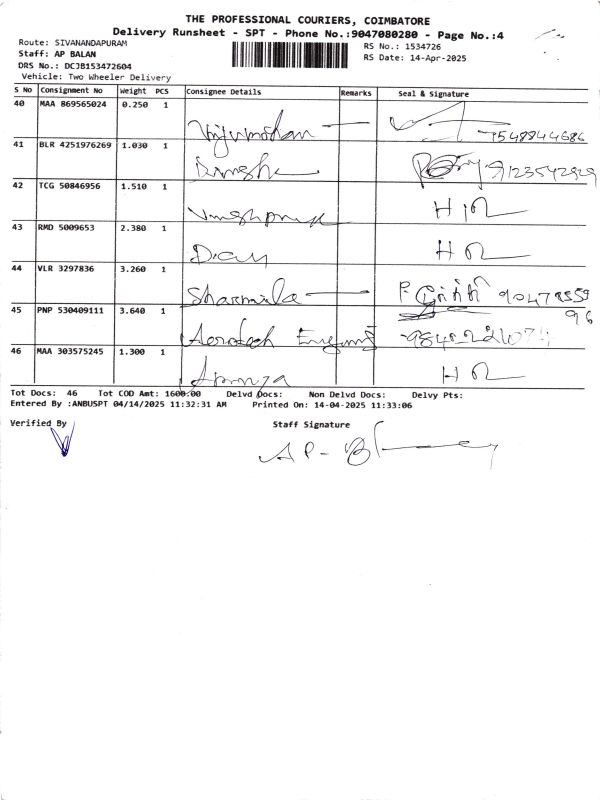 THE PROFESSIONAL COURIERS, COIMBATORE
Delivery Runsheet - SPT - Phone No.:9047080280 - Page No.:4
Route: SIVANANDAPURAM
RS No.: 1534726
Staff: AP BALAN
RS Date: 14-Apr-2025
DRS No.: DCJB153472604
Vehicle: Two Wheeler Delivery
S No Consignment No Weight PCS Consignee Details Remarks Seal & Signature
40 MAA 869565024 0.250 1
7548844686
41 BLR 4251976269 1.030 1
Dinesh 9123542929
42 TCG 50846956 1.510 1
H
43 RMD 5009653 2.380 1
H
44 VLR 3297836 3.260 1
Sharmila 90478559
96
45 PNP 530409111 3.640 1
Aerotech
46 MAA 303575245 1.300 1
H
Tot Docs: 46 Tot COD Amt: 1600:00 Delvd Docs: Non Delvd Docs: Delvy Pts:
Entered By :ANBUSPT 04/14/2025 11:32:31 AM Printed On: 14-04-2025 11:33:06
Verified By Staff Signature
A P - B